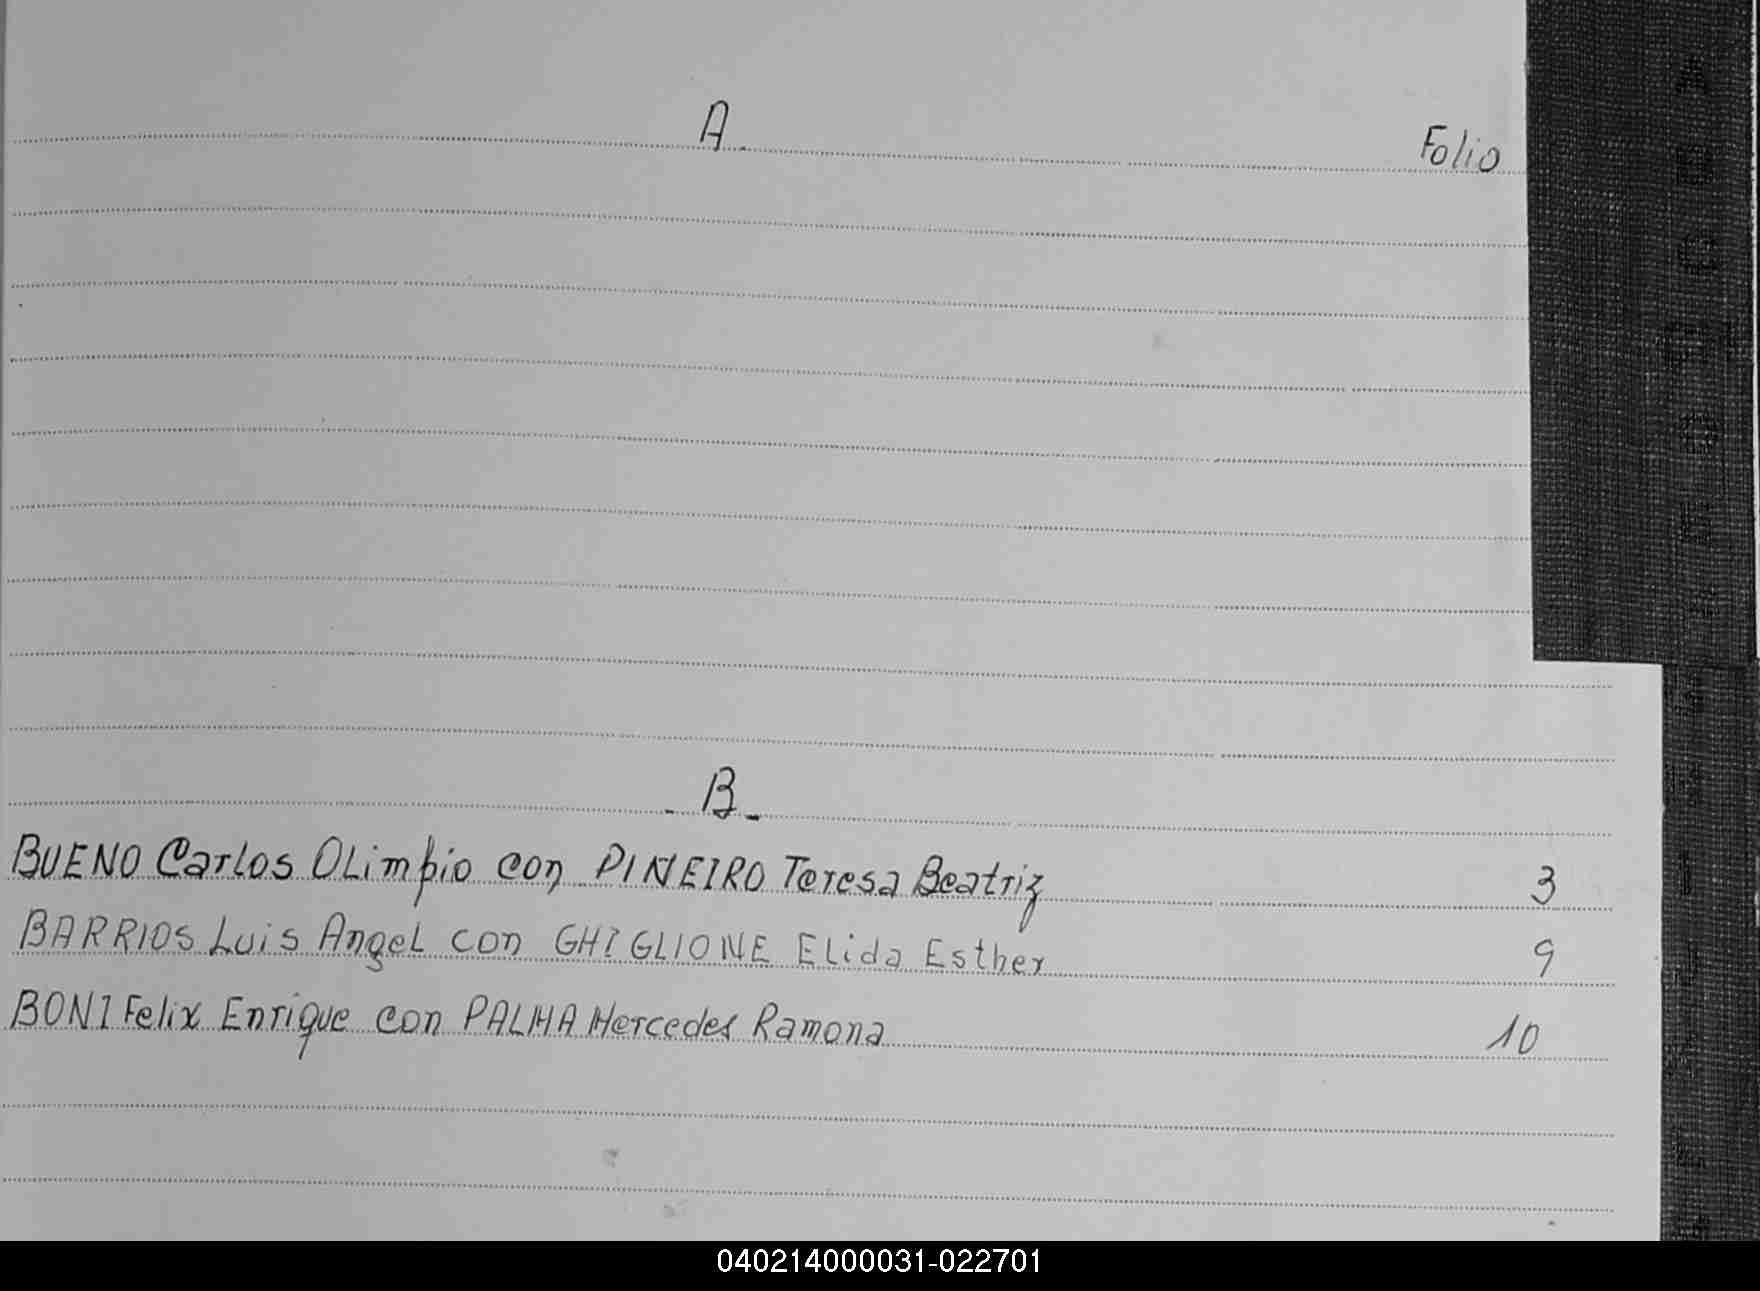 A. Folio
- B -
BUENO Carlos OLimpio con PINEIRO Teresa Beatriz 3
BARRIOS Luis Angel con GHIGLIONE Elida Esther 9
BONI Felix Enrique con PALMA Mercedes Ramona 10
040214000031-022701